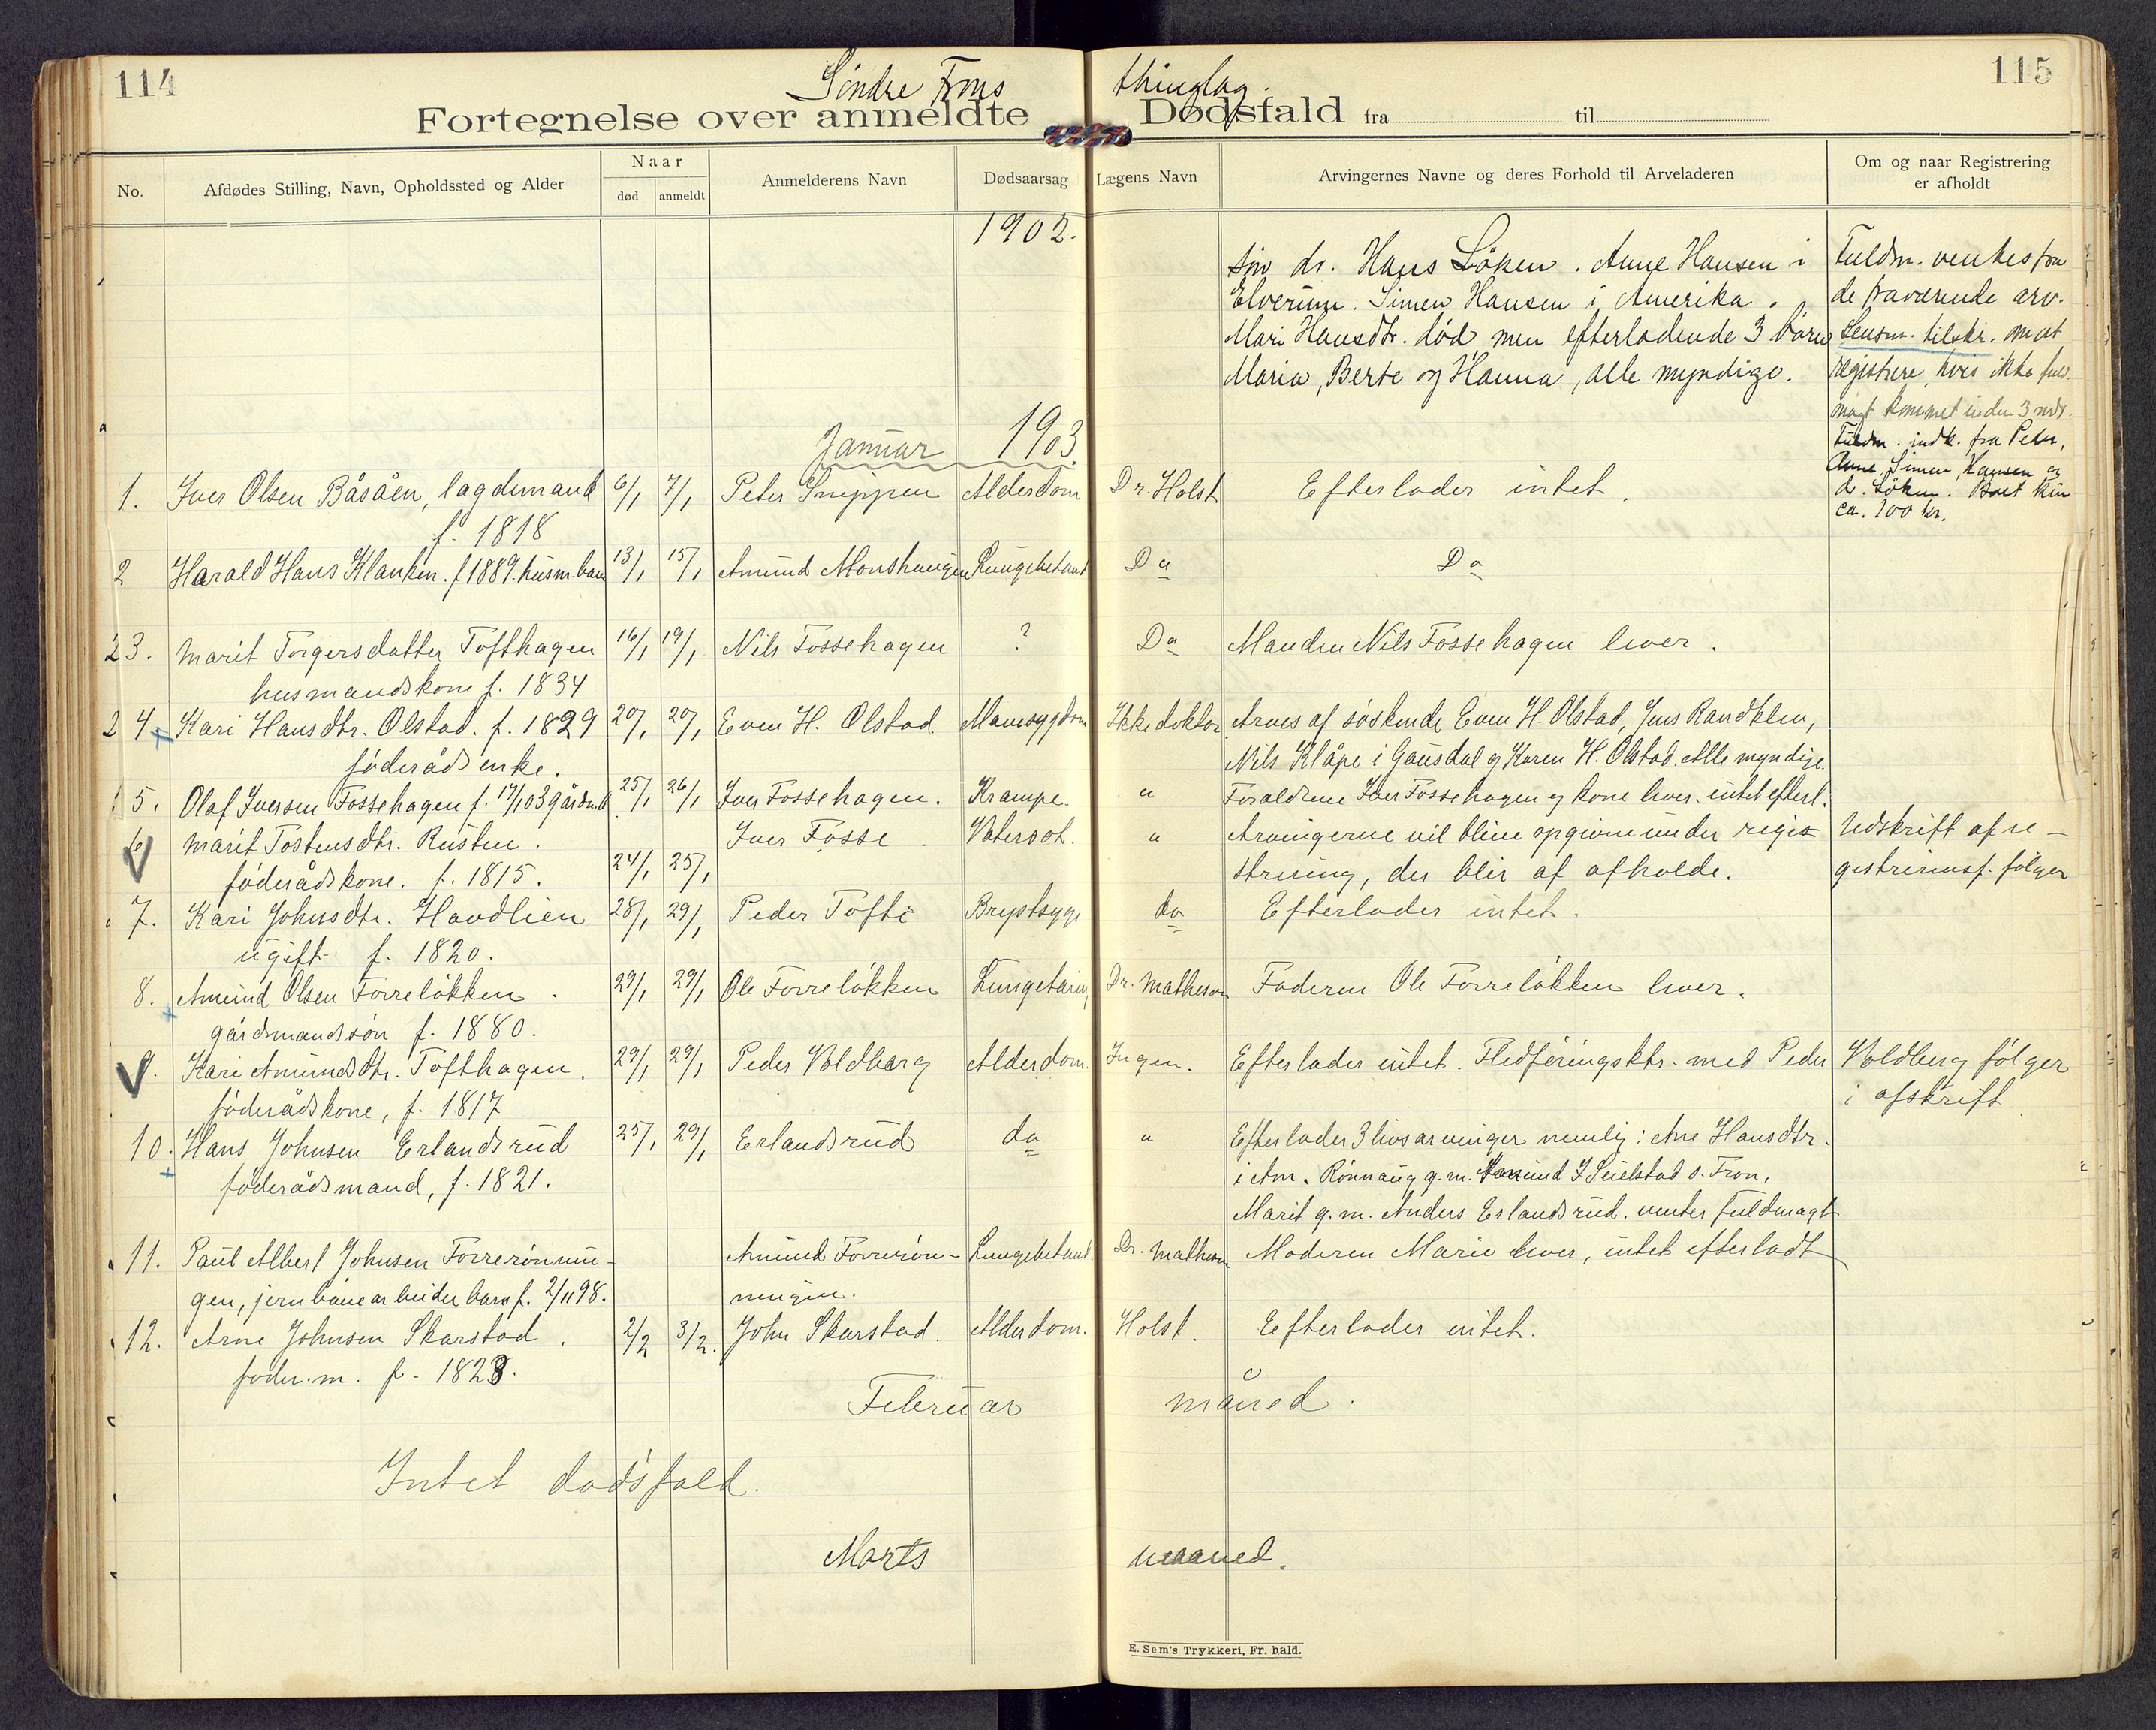 114
Söndre Frons thinglag.
115
Fortegnelse over anmeldte Dødsfald fra til
No.
Afdødes Stilling, Navn, Opholdssted og Alder
Naar
død
anmeldt
Anmelderens Navn
Dødsaarsag
Lægens Navn
Arvingernes Navne og deres Forhold til Arveladeren
Om og naar Registrering
er afholdt
1902.
dr. Hans Löken. Anne Hansen i
Elverum. Simen Hansen i Amerika.
Mari Hansdtr. død men efterladende 3 börn
Maria, Berte og Hanna, alle myndige.
Fuldm. ventes fra
de fraværende arv.
Lensm. tilskr. om at
registrere, hvis ikke fuld
magt kommet inden 3 mdr.
Fuldm. indk. fra Peder,
Anne, Simen Hansen og
d. Löken. Boet kun
ca. 100 kr.
Januar 1903.
1. Iver Olsen Båsåen, lagdemand 6/1 7/1 Peter Snippen Alderdom Dr. Holst Efterlader intet.
f. 1818
2 Harald Hans Klanken. f 1889. husm. barn 13/1 15/1 Amund Monshaugen Lungebetænd Do Do
23. Marit Torgersdatter Tofthagen 16/1 19/1 Nils Fossehagen ? Do Manden Nils Fossehagen lever.
husmandskone f. 1834
2 4. Kari Hansdtr. Olstad. f. 1829 20/1 20/1 Even H. Olstad Mavesygdom Ikke doktor Arves af söskende Even H. Olstad, Jens Randklev,
föderåds enke. Nils Klåpe i Gausdal og Karen H. Olstad. Alle myndige.
5. Olaf Iversen Fossehagen f. 17/1 03 gårdm.b 25/1 26/1 Iver Fossehagen. Krampe. " Foraldrene Iver Fossehagen og kone lever. intet efterl.
6 Marit Tostensdtr. Rusten. Iver Fosse. Vatersot. " Arvingerne vil blive opgivne under regis- Udskrift af re-
föderådskone. f. 1815. 24/1 25/1 strering, der blir af afholde. gistreringsf. fölger
7. Kari Johnsdtr. Haudlien 28/1 29/1 Peder Tofte Brystsyge do Efterlader intet.
ugift f. 1820.
8. Amund Olsen Forrelökken. 29/1 29/1 Ole Forrelökken Lungetæring Dr. Matheson Faderen Ole Forrelökken lever.
gårdmandssön f. 1880.
9. Kari Amundsdtr. Tofthagen. 29/1 29/1 Peder Voldberg Alderdom. Ingen. Efterlader intet. Fledföringsktr. med Peder Voldberg fölger
föderådskone, f. 1817 i afskrift
10. Hans Johnsen Erlandsrud 25/1 29/1 Erlandsrud do " Efterlader 3 livsarvinger nemlig: Ane Hansdtr.
föderådsmand, f. 1821. i Am. Rönnaug g. m. Amund I Seielstad s. Fron,
Marit g. m. Anders Erlandsrud. venter fuldmagt
11. Paul Albert Johnsen Forrerönnin- Amund Forrerön- Lungebetænd. Dr. Matheson Moderen Marie lever, intet efterladt
gen, jernbanearbeider barn f. 2/11 98. ningen.
12. Arne Johnsen Skarstad. 2/2 3/2. John Skarstad. Alderdom. Holst. Efterlader intet.
föder. m. f. 1823.
Februar måned.
Intet dødsfald.
Marts maaned.
E. Sem's Trykkeri, Fr. hald.